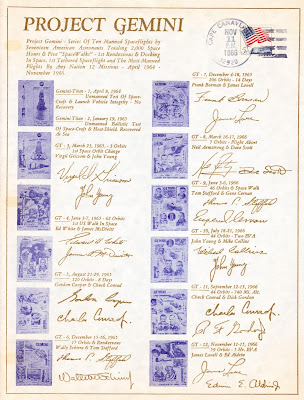 PROJECT GEMINI
Project Gemini - Series Of Ten Manned Spaceflights by
Seventeen American Astronauts Totaling 2,000 Space
Hours & Five "SpaceWalks" - 1st Rendezvous & Docking
In Space, 1st Tethered Spaceflight and The Most Manned
Flights By Any Nation 12 Missions - April 1964 -
November 1965.
CAPE CANAVERAL
NOV
11
1966
32920
Gemini-Titan - 1, April 8, 1964
Unmanned Test Of Space-
Craft & Launch Vehicle Integrity - No
Recovery
Gemini-Titan - 2, January 19, 1965
Unmanned Ballistic Test
Of Space-Craft & Heat-Shield Recovered
@ Sea
GT - 3, March 23, 1965 - 3 Orbits
1st Space Orbit Change
Virgil Grissom & John Young
Virgil I. Grissom
John Young
GT - 4, June 3-7, 1965 - 62 Orbits
1st US Walk In Space
Ed White & James McDivitt
Edward H. White
James A. McDivitt
GT - 5, August 21-29, 1965
120 Orbits - 8 Days
Gordon Cooper & Chuck Conrad
Gordon Cooper
Charles Conrad Jr.
GT - 6, December 15-16, 1965
17 Orbits & Rendezvous
Wally Schirra & Tom Stafford
Thomas P. Stafford
Walter M. Schirra
GT - 7, December 4-18, 1965
206 Orbits 14 Days
Frank Borman & James Lovell
Frank Borman
James Lovell
GT - 8, March 16-17, 1966
7 Orbits - Flight Abort
Neil Armstrong & Dave Scott
Dave Scott
GT - 9, June 3-6, 1966
46 Orbits & Space Walk
Tom Stafford & Gene Cernan
Thomas P. Stafford
Eugene A. Cernan
GT - 10, July 18-21, 1966
44 Orbits - Two EVA
John Young & Mike Collins
Michael Collins
John Young
GT - 11, September 12-15, 1966
44 Orbits - 740 Mi. Alt.
Chuck Conrad & Dick Gordon
Charles Conrad Jr.
R. F. Gordon Jr.
GT - 12, November 11-15, 1966
59 Orbits - 5 Hr. EVA
James Lovell & Ed Aldrin
James Lovell
Edwin E. Aldrin Jr.